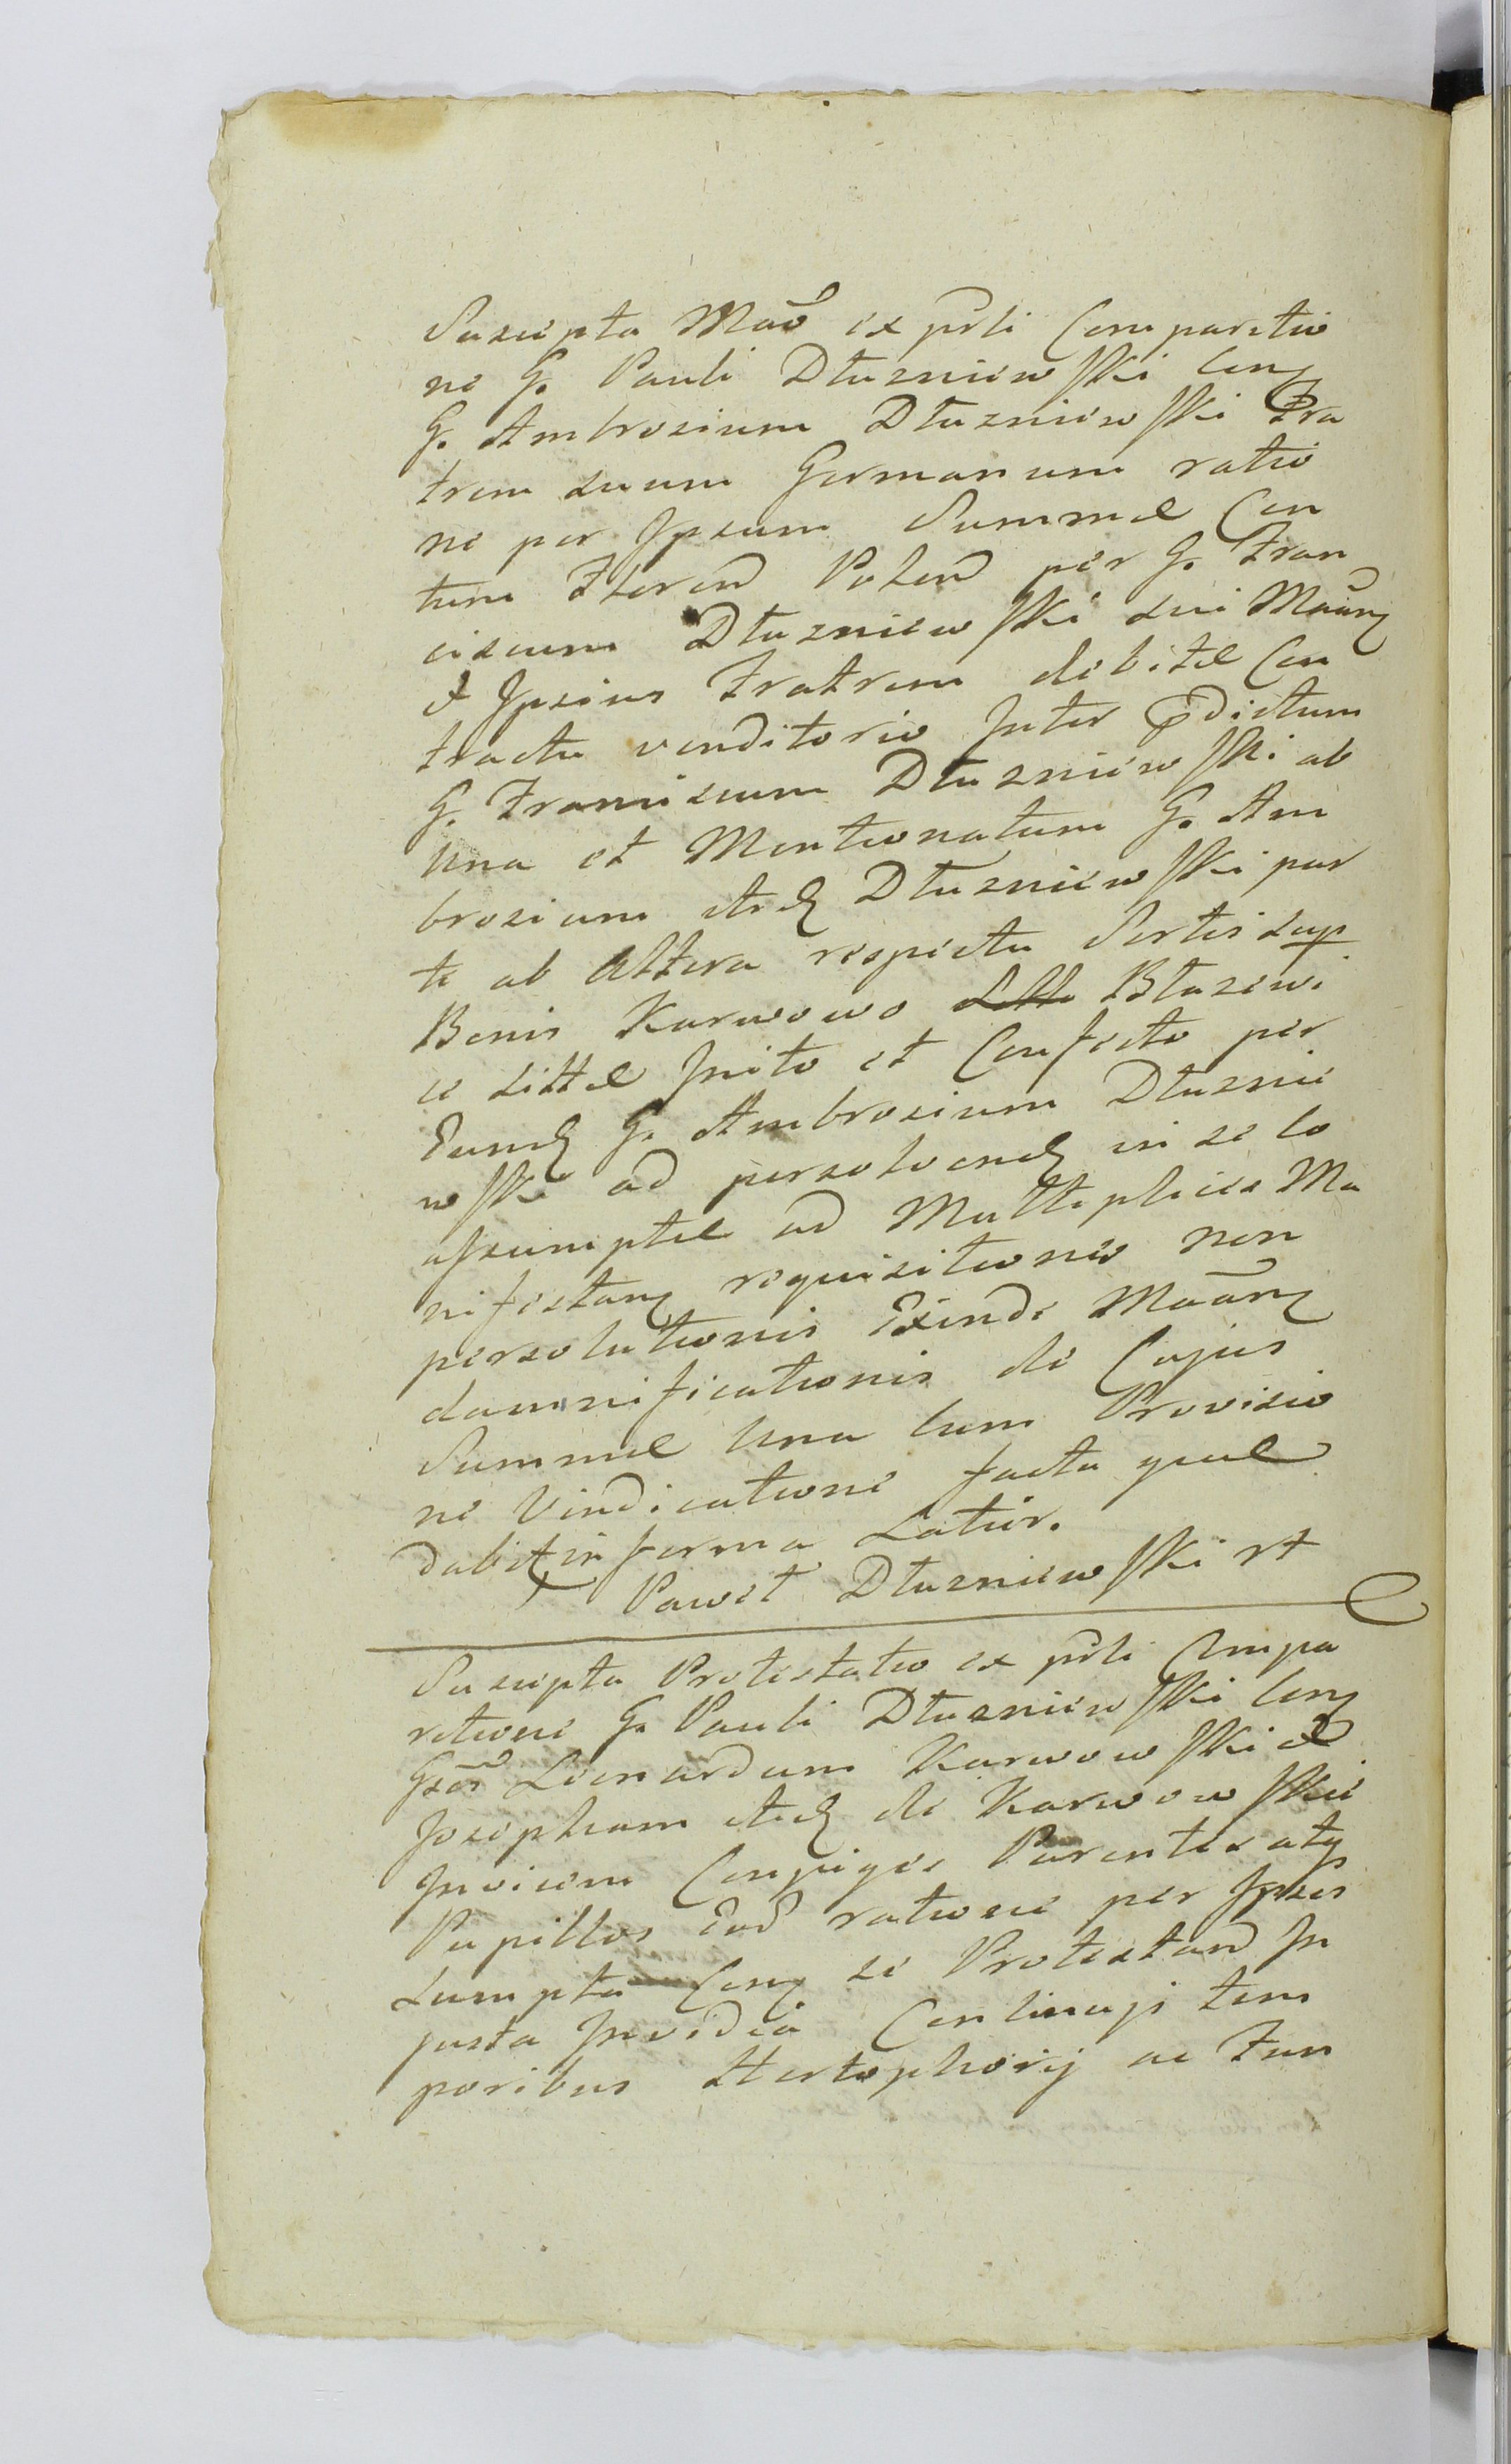 Suscepta Mão ex psti Comparitio
ne G. Pauli Dłuzniewski Con
G. Ambrosium Dłuzniewski Fra
trem suum Germanum ratio
ne per Ipsum Summæ Cen
tum Floren̄ Polon̄ per G. Fran
ciscum Dłuzniewski sui Mãan
et Ipsius Fratrem debitæ Con
tractu venditorio Inter pdictum
G. Franciscum Dłuzniewski ab
una et Mentionatum G. Am
brosium itid Dłuzniewski par
te ab Altera respectu Sortis sup
Bonis Karwowo Blazewi
ce sittæ Inito et Confecto per
Eund G. Ambrosium Dłuznie
wski ad persolvend in se lo
assumptæ ad Multiplices Ma
nifestan requisitiones non
persolutionis Exinde Mãan
damnificationis de Cujus
Summæ una cum Provisio
ne Vindicatione facta quæ
dabit in forma Latior.
Paweł Dłuzniewski
Suscepta Protestatio ex psti Compa
ritione G. Pauli Dłuzniewski Con
Gsos Leonardum Karwowski et
Josepham itid de Karwowskie
Invicem Conjuges Parentes atq
Pupillos Eod ratione per Ipsos
sumpta Con se Protestand In
justa Invidia Continuis tem
poribus ac Fun